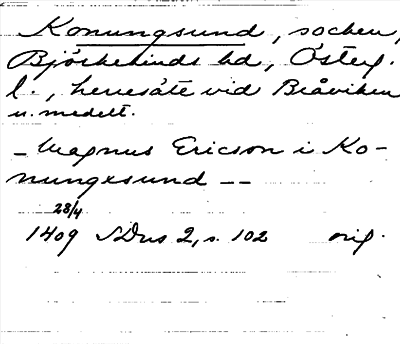 Konungsund, socken,
Björkekinds hd, Österg.
l., herresäte vid Bråviken
u. medelt.
– Magnus Ericson i Ko-
nungxsund ––
28/4
1409 SDns 2, s. 102 orig.